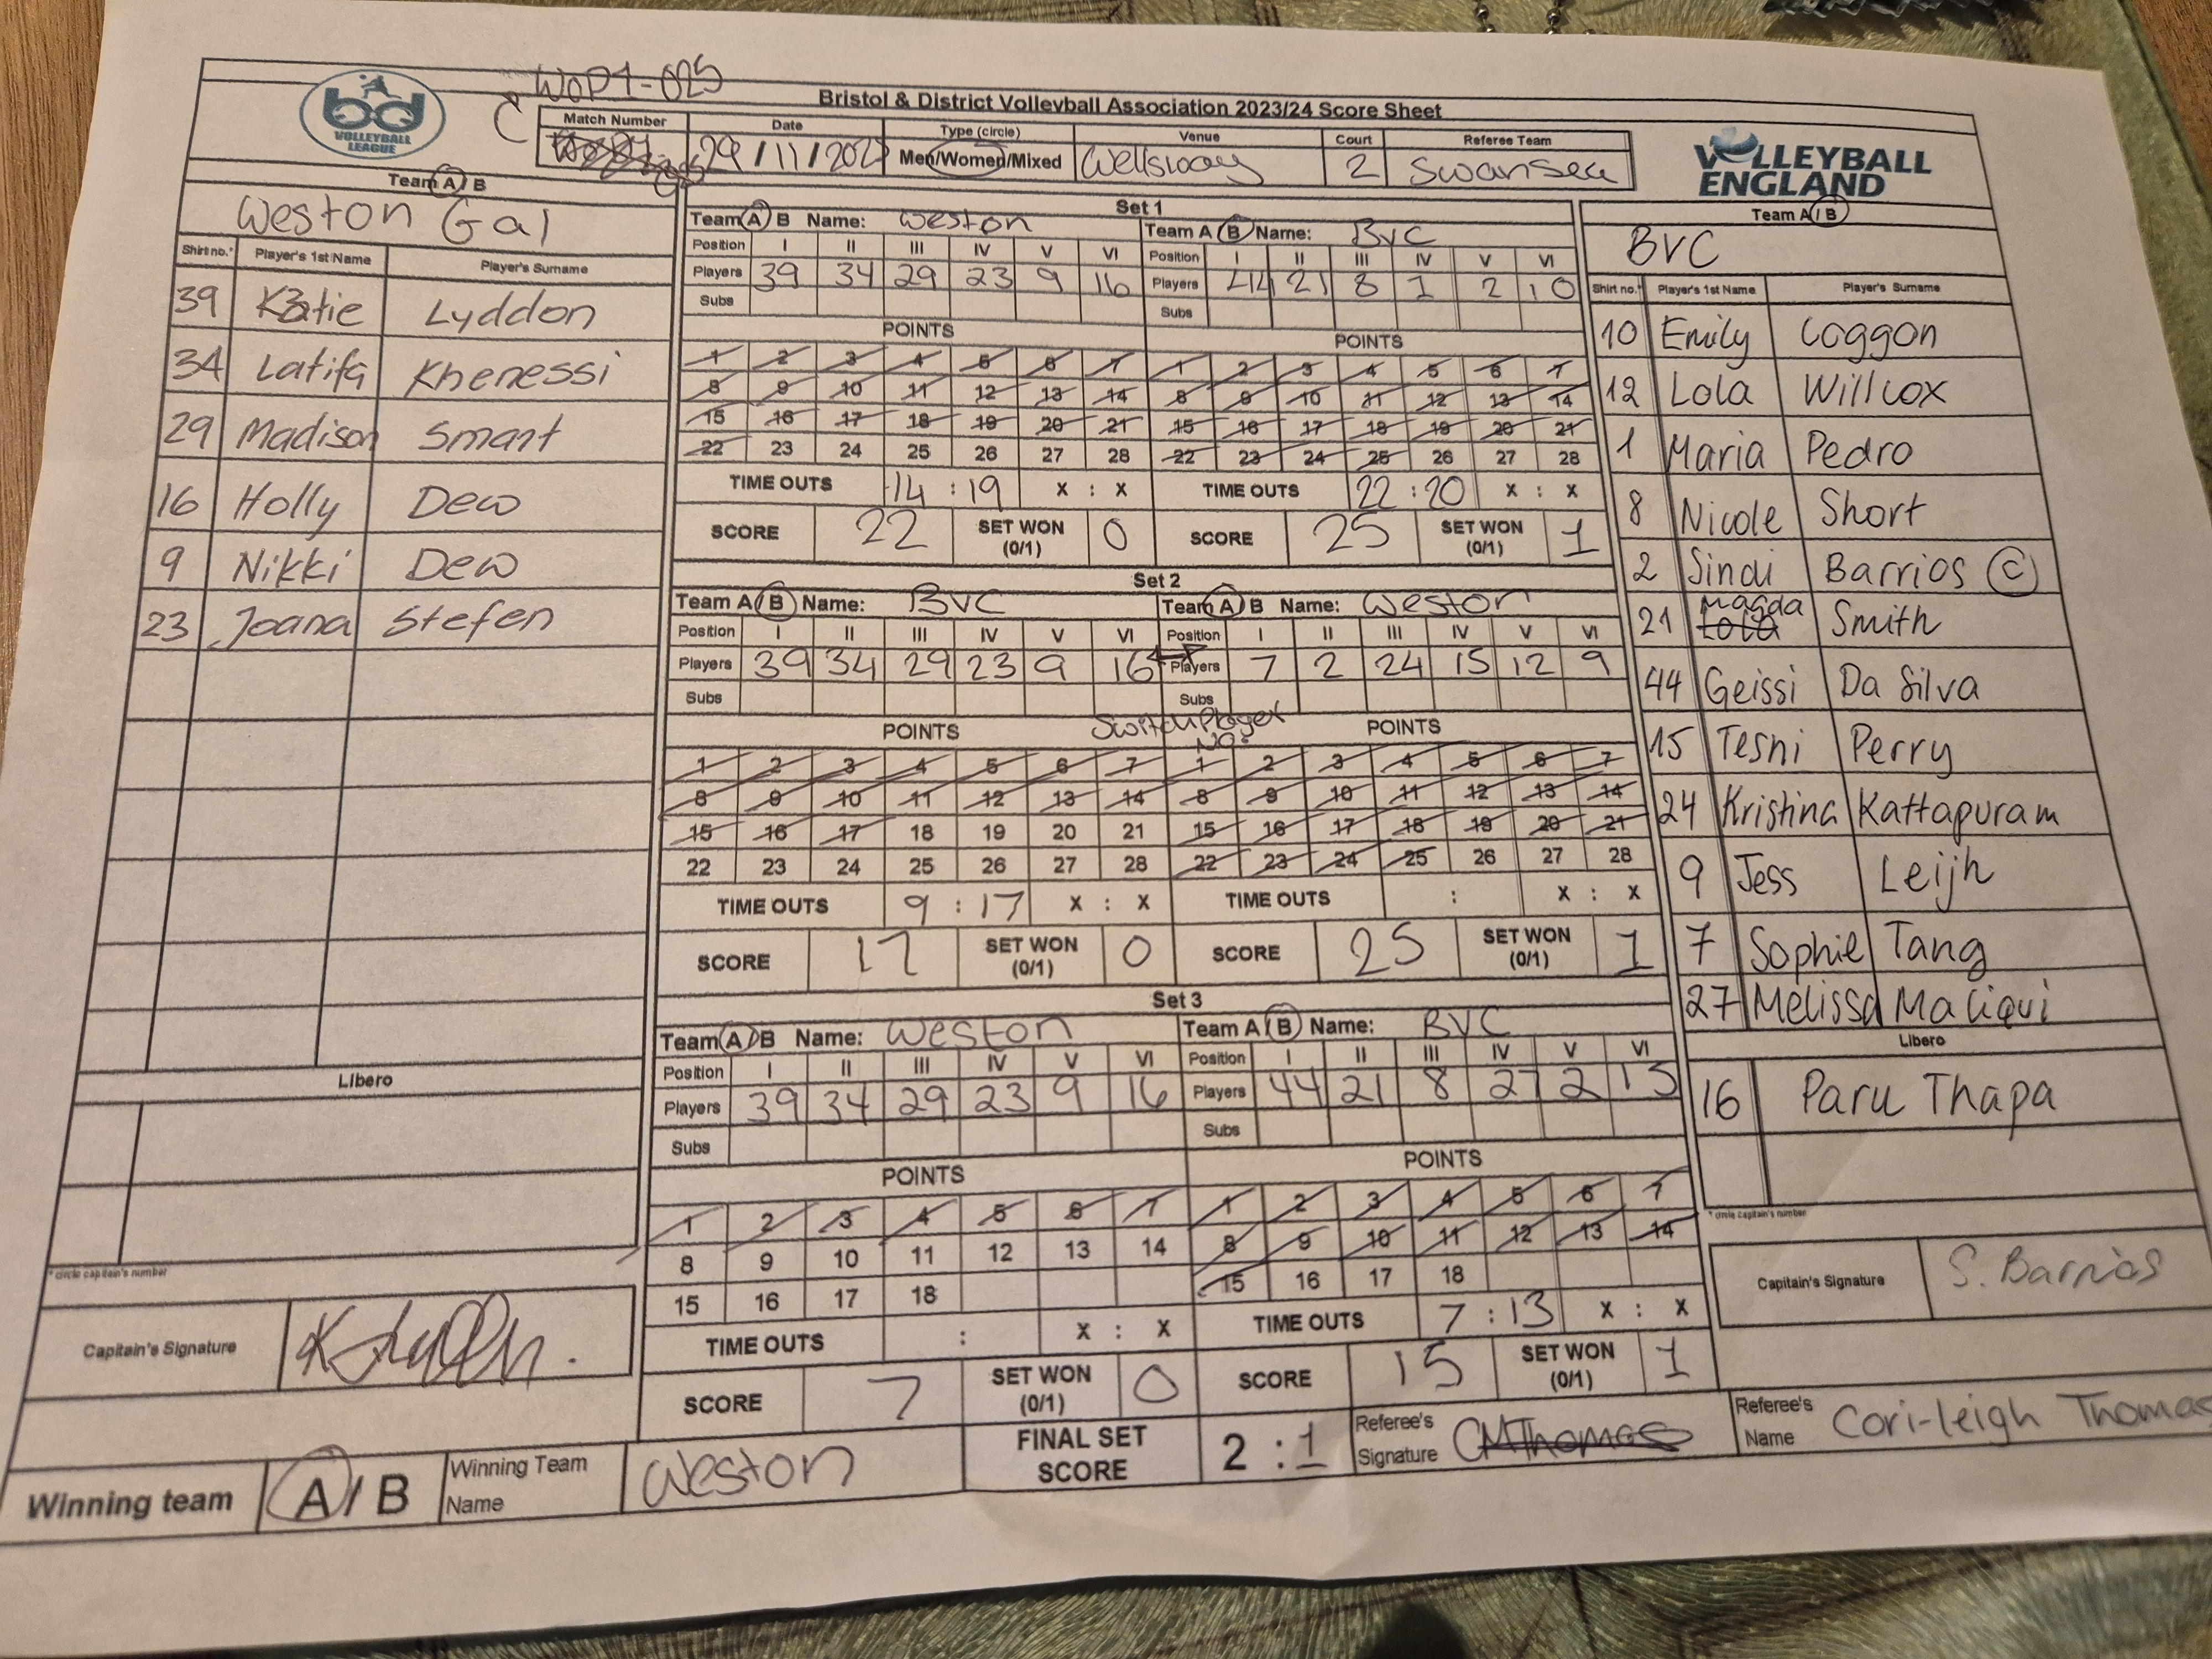 WoP1-025
Bristol & District Volleyball Association 2023/24 Score Sheet
bd
VOLLEYBALL
LEAGUE
Match Number Date Type (circle) Venue Court Referee Team
29/11/202 Men/Women/Mixed Wellsway 2 Swansea
VOLLEYBALL
ENGLAND
Team A / B
Weston Gal
Shirt no.* Player's 1st Name Player's Surname
39 Katie Lyddon
34 Latifa Khenessi
29 Madison Smart
16 Holly Dew
9 Nikki Dew
23 Joana Stefen
Libero
* circle captain's number
Capitain's Signature
Set 1
Team A B Name: Weston
Position I II III IV V VI
Players 39 34 29 23 9 16
Subs
POINTS
1 2 3 4 5 6 7
8 9 10 11 12 13 14
15 16 17 18 19 20 21
22 23 24 25 26 27 28
TIME OUTS 14 : 19 X : X
SCORE 22 SET WON (0/1) 0
Team A B Name: BVC
Position I II III IV V VI
Players 44 21 8 1 2 10
Subs
POINTS
1 2 3 4 5 6 7
8 9 10 11 12 13 14
15 16 17 18 19 20 21
22 23 24 25 26 27 28
TIME OUTS 22 : 20 X : X
SCORE 25 SET WON (0/1) 1
Set 2
Team A / B Name: BVC
Position I II III IV V VI
Players 39 34 29 23 9 16
Subs
Switch Player
No.
POINTS
1 2 3 4 5 6 7
8 9 10 11 12 13 14
15 16 17 18 19 20 21
22 23 24 25 26 27 28
TIME OUTS 9 : 17 X : X
SCORE 17 SET WON (0/1) 0
Team A / B Name: Weston
Position I II III IV V VI
Players 7 2 24 15 12 9
Subs
POINTS
1 2 3 4 5 6 7
8 9 10 11 12 13 14
15 16 17 18 19 20 21
22 23 24 25 26 27 28
TIME OUTS : X : X
SCORE 25 SET WON (0/1) 1
Set 3
Team A / B Name: Weston
Position I II III IV V VI
Players 39 34 29 23 9 16
Subs
POINTS
1 2 3 4 5 6 7
8 9 10 11 12 13 14
15 16 17 18
TIME OUTS : X : X
SCORE 7 SET WON (0/1) 0
Team A / B Name: BVC
Position I II III IV V VI
Players 44 21 8 27 2 15
Subs
POINTS
1 2 3 4 5 6 7
8 9 10 11 12 13 14
15 16 17 18
TIME OUTS 7 : 13 X : X
SCORE 15 SET WON (0/1) 1
Team A / B
BVC
Shirt no.* Player's 1st Name Player's Surname
10 Emily Coggon
12 Lola Willcox
1 Maria Pedro
8 Nicole Short
2 Sindi Barrios C
21 Lola Magda Smith
44 Geissi Da Silva
15 Tesni Perry
24 Kristina Kattapuram
9 Jess Leijh
7 Sophie Tang
27 Melissa Maliqui
Libero
16 Paru Thapa
* circle captain's number
Capitain's Signature S. Barrios
Winning team A / B Winning Team Name Weston FINAL SET SCORE 2 : 1 Referee's Signature CMThomas Referee's Name Cori-leigh Thomas